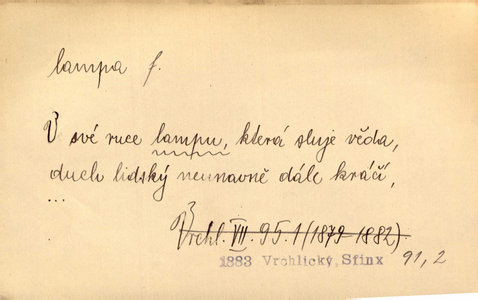 lampa f.
V své ruce lampu, která sluje věda,
duch lidský neunavně dále kráčí,
...
Vrchl. VII. 95.1 (1879-1882).
1883 Vrchlický, Sfinx 91,2